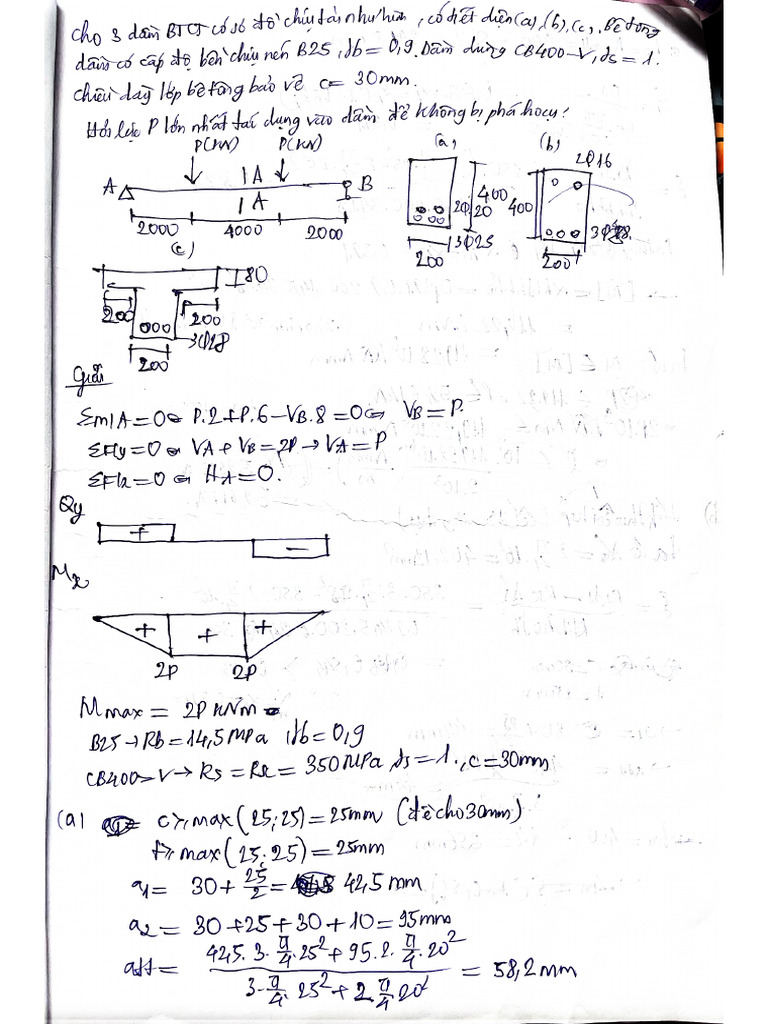 Cho 3 dầm BTCT có sơ đồ chịu tải như hình, có tiết diện (a), (b), (c). Bê tông
dầm có cấp độ bền chịu nén B25, γb = 0,9. Dầm dùng CB400-V, γs = 1.
Chiều dày lớp bê tông bảo vệ c = 30mm.
Hỏi lực P lớn nhất tác dụng vào dầm để không bị phá hoại?
P(kN) P(kN) (a) (b)
A A B 2Φ16
A
400 400
2Φ20
3Φ25
2000 4000 2000
200 200
(c)
80
200 200
3Φ28
200
Giải
Σm/A = 0 ⇔ P.2 + P.6 - VB.8 = 0 ⇔ VB = P.
ΣF/y = 0 ⇔ VA + VB = 2P → VA = P
ΣF/x = 0 ⇔ HA = 0.
Qy
+ -
Mx
+ + +
2P 2P
Mmax = 2P kNm
B25 → Rb = 14,5 MPa, γb = 0,9
CB400-V → Rs = Rsc = 350MPa, γs = 1., c = 30mm
(a) c ≥ max(25; 25) = 25mm (đề cho 30mm)
t ≥ max(25; 25) = 25mm
a1 = 30 + 25/2 = 42,5 mm
a2 = 30 + 25 + 30 + 10 = 95mm
att = (42,5. 3. π/4. 25² + 95. 2. π/4. 20²) / (3. π/4. 25² + 2. π/4 20²) = 58,2 mm